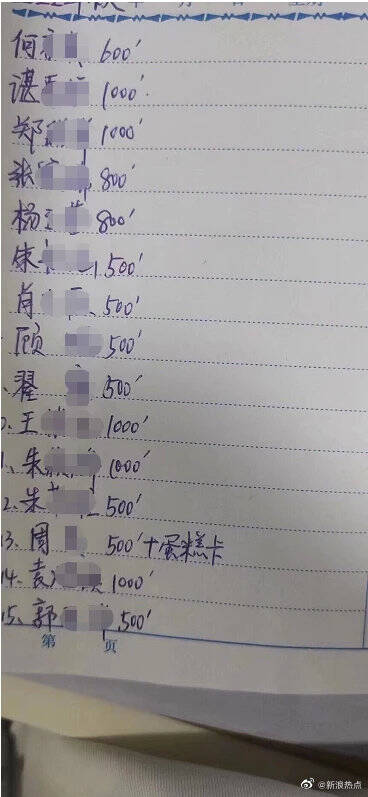 年 月 日 星期
何 600'
谌 1000'
郑 1000'
张 800'
杨 800'
朱 500'
肖 500'
顾 500'
翟 500'
0、王 1000'
1、朱 1000'
2、朱 500'
13、周 500'+蛋糕卡
14、袁 1000'
15、郭 500'
第 页
@新浪热点